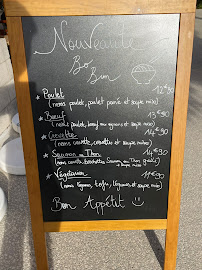 Nouveauté
Bo
Bun
* Poulet 12€90
(nems poulet, poulet pané et soupe miso)
* Boeuf 13€90
(nems poulet, boeuf aux oignons et soupe miso)
* Crevette 14€90
(nems crevette, crevettes et soupe miso)
* Saumon ou Thon 14€90
(nems crevette, brochettes Saumon ou Thon
+ soupe miso)
* Végétarien 11€90
(nems légumes, tofu, légumes et soupe miso)
Bon Appétit